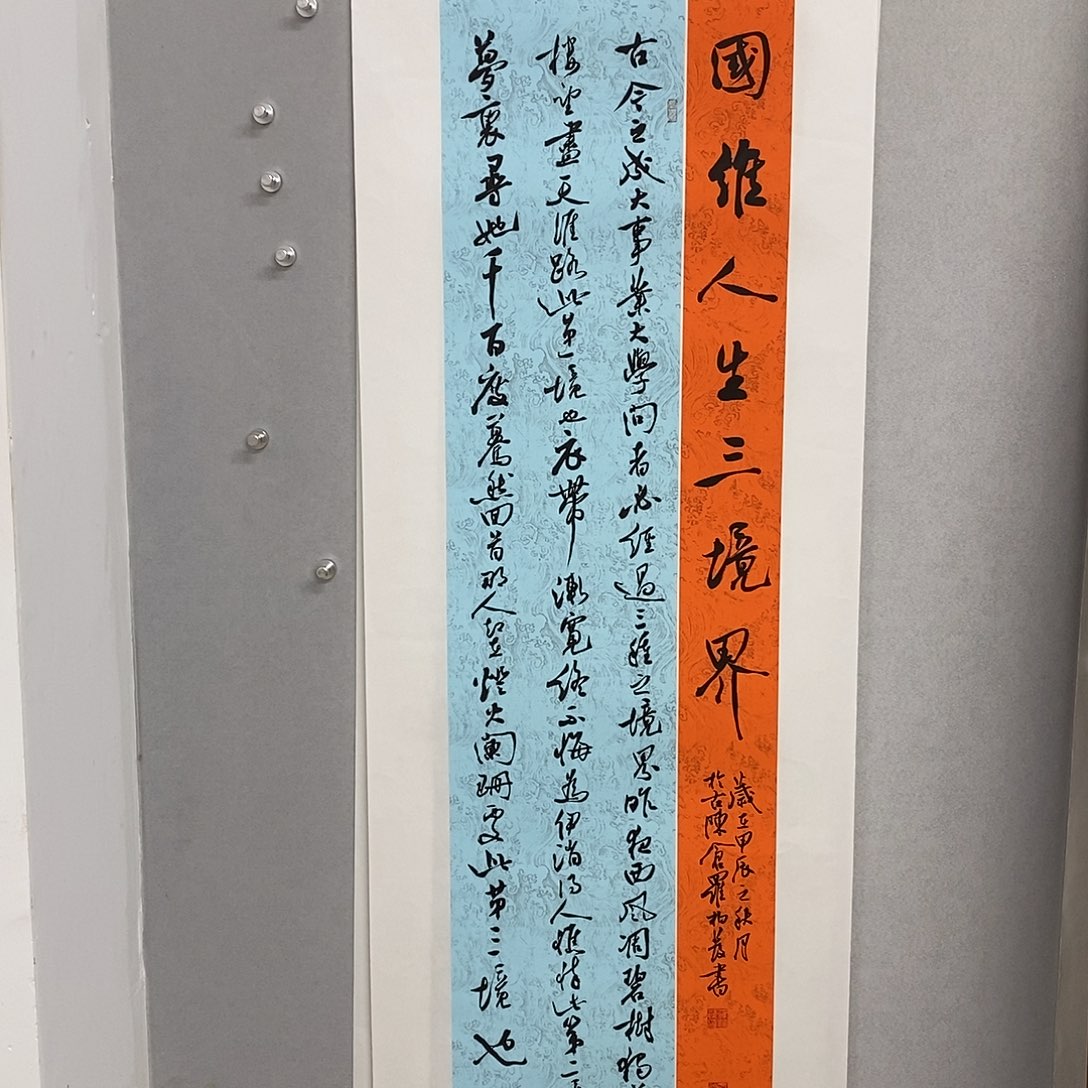 國維人生三境界
歲在甲辰之秋月
於古陳倉羅柏長書
古今之成大事業大學問者必經過三種之境界昨夜西風凋碧樹獨
樓望盡天涯路此第一境也衣帶漸寬終不悔為伊消得人憔悴此第二
夢裏尋她千百度驀然回首那人卻在燈火闌珊處此第三境也